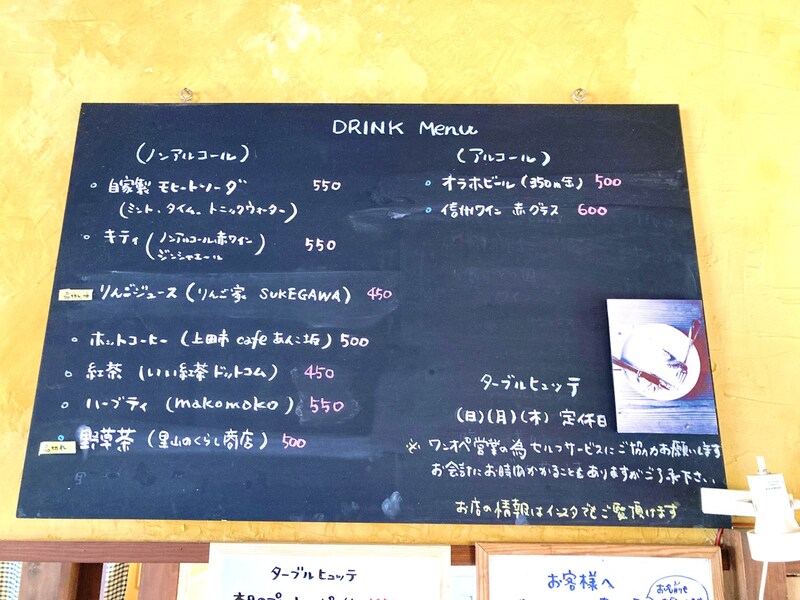 DRINK Menu
(ノンアルコール)
自家製 モヒートソーダ 550
(ミント、タイム、トニックウォーター)
キティ (ノンアルコール赤ワイン
ジンジャエール) 550
りんごジュース (りんご家 SUKEGAWA) 450
ホットコーヒー (上田市 cafe あんこ坂) 500
紅茶 (いい紅茶ドットコム) 450
ハーブティ (makomoko) 550
野草茶 (里山のくらし商店) 500
(アルコール)
オラホビール (350ml缶) 500
信州ワイン 赤 グラス 600
ターブルヒュッテ
(日)(月)(木) 定休日
※ ワンオペ営業の為 セルフサービスにご協力お願いします
お会計にお時間かかることもありますがご了承下さい
お店の情報はインスタでもご覧頂けます
ターブルヒュッテ
お客様へ